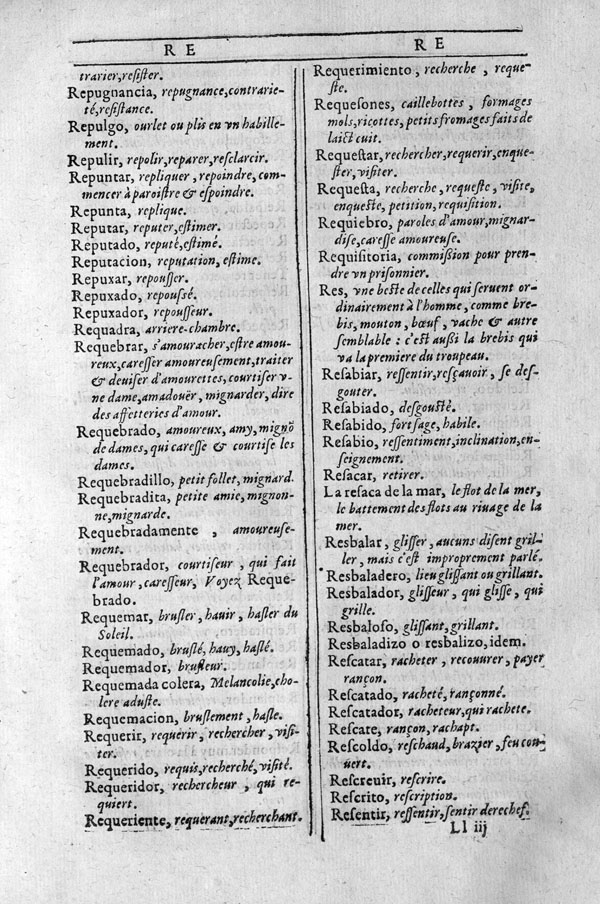 R E
trarier, reſiſter.
Repugnancia, repugnance, contrarie-
té, reſiſtance.
Repulgo, ourlet ou plis en vn habille-
ment.
Repulir, repolir, reparer, reſclarcir.
Repuntar, repliquer, repoindre, com-
mencer à paroiſtre & eſpoindre.
Repunta, replique.
Reputar, reputer, eſtimer.
Reputado, reputé, eſtimé.
Reputacion, reputation, eſtime.
Repuxar, repouſſer.
Repuxado, repouſſé.
Repuxador, repouſſeur.
Requadra, arriere-chambre.
Requebrar, s'amouracher, eſtre amou-
reux, careſſer amoureuſement, traiter
& deuiſer d'amourettes, courtiſer v-
ne dame, amadouër, mignarder, dire
des affetteries d'amour.
Requebrado, amoureux, amy, mignõ
de dames, qui careſſe & courtiſe les
dames.
Requebradillo, petit follet, mignard.
Requebradita, petite amie, mignon-
ne, mignarde.
Requebradamente, amoureuſe-
ment.
Requebrador, courtiſeur, qui fait
l'amour, careſſeur, Voyez Reque-
brado.
Requemar, bruſler, hauir, haſler du
Soleil.
Requemado, bruſlé, hauy, haſlé.
Requemador, bruſleur.
Requemada colera, Melancolie, cho-
lere aduſte.
Requemacion, bruſlement, haſle.
Requerir, requerir, rechercher, viſi-
ter.
Requerido, requis, recherché, viſité.
Requeridor, rechercheur, qui re-
quiert.
Requeriente, requerant, recherchant.
R E
Requerimiento, recherche, reque-
ſte.
Requeſones, caillebottes, formages
mols, ricottes, petits fromages faits de
laict cuit.
Requeſtar, rechercher, requerir, enque-
ſter, viſiter.
Requeſta, recherche, requeſte, viſite,
enqueſte, petition, requiſition.
Requiebro, paroles d'amour, mignar-
diſe, careſſe amoureuſe.
Requiſitoria, commißion pour pren-
dre vn priſonnier.
Res, vne beſte de celles qui ſeruent or-
dinairement à l'homme, comme bre-
bis, mouton, bœuf, vache & autre
ſemblable : c'eſt außi la brebis qui
va la premiere du troupeau.
Reſabiar, reſſentir, reſçauoir, ſe deſ-
gouter.
Reſabiado, deſgouſté.
Reſabido, fort ſage, habile.
Reſabio, reſſentiment, inclination, en-
ſeignement.
Reſacar, retirer.
La reſaca de la mar, le flot de la mer,
le battement des flots au riuage de la
mer.
Resbalar, gliſſer, aucuns diſent gril-
ler, mais c'eſt improprement parlé.
Resbaladero, lieu gliſſant ou grillant.
Resbalador, gliſſeur, qui gliſſe, qui
grille.
Resbaloſo, gliſſant, grillant.
Resbaladizo o resbalizo, idem.
Reſcatar, racheter, recouurer, payer
rançon.
Reſcatado, racheté, rançonné.
Reſcatador, racheteur, qui rachete.
Reſcate, rançon, rachapt.
Reſcoldo, reſchaud, brazier, feu cou-
uert.
Reſcreuir, reſcrire.
Reſcrito, reſcription.
Reſentir, reſſentir, ſentir derechef.
Ll iij